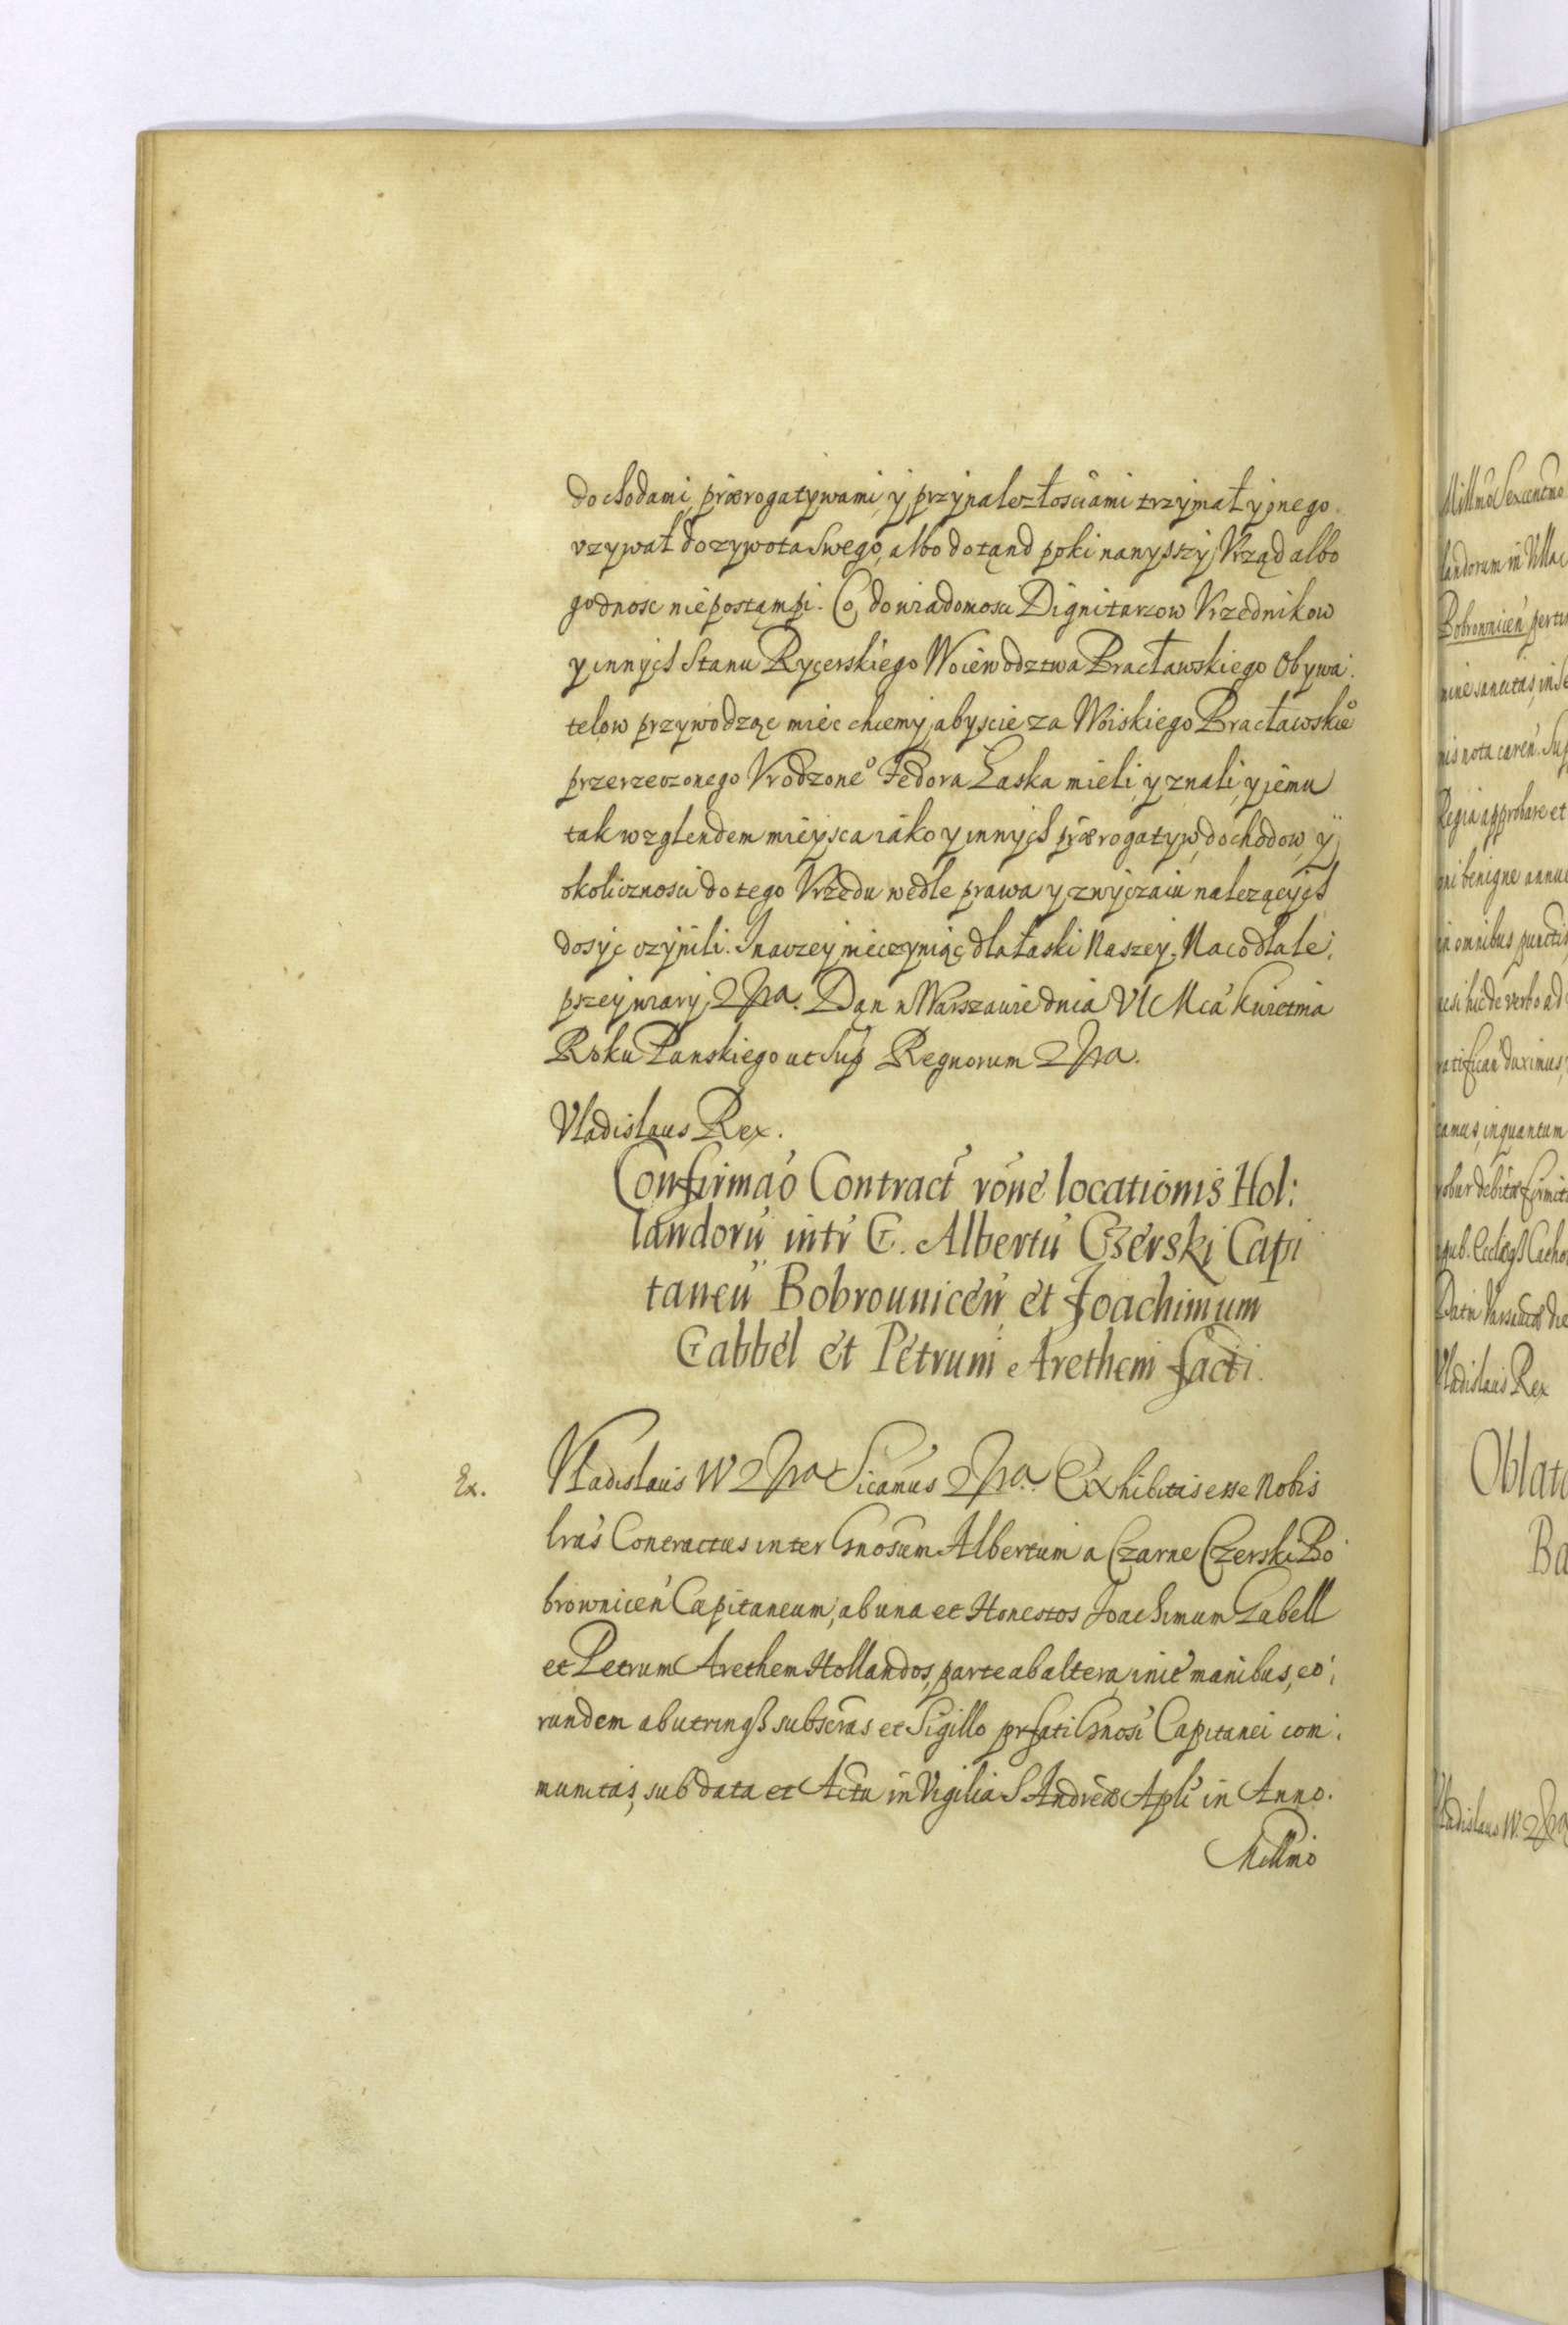 dochodami, prærogatywami, y przynależtościami trzymał y onego
vzywał do zywota swego, albo dotąnd poki na wyższy Vrząd albo
godnosc niepostąmpi. Co, do wiadomosci Dignitarzow Vrzędnikow
y innych Stanu Rycerskiego Woiewodztwa Bracławskiego Obywa:
telow przywodząc miec chcemy, abyscie za Woiskiego Bracławskieº
przerzeczonego Vrodzoneº Fedora Łaska mieli, y znali, y jemu
tak wzglendem mieysca iako y innych prærogatyw, dochodow, ÿ
okolicznosci do tego Vrzędu wedle prawa y zwyczaiu nalezących
dosyc vczynili. Inaczey nieczyniąc dla łaski Naszey. Na co dla le:
pszey wiary, &ra. Dan w Warszawie dnia VI Mca kwietnia
Roku Panskiego ut sup Regnorum &ra.
Vladislaus Rex.
Confirmaō Contract rōne locationis Hol:
landorū intr G. Albertū Czerski Capi
taneū Bobrounicen et Joachimum
Gabbel et Petrum Arethem facti.
Ex.
Vladislaus IV &ra Sicamus &ra. Exhibitas esse Nobis
lras Contractus inter Gnosum Albertum a Czarne Czerski Bo
brownicen Capitaneum, ab una et Honestos Joachimum Gabell
et Petrum Arethem Hollandos, parte ab altera, init manibus, eo:
rundem ab utrinqß subscras et Sigillo prfati Gnosi Capitanei com:
munitas, sub data et Actu in Vigilia S Andreæ Apli in Anno.
Millmo
Millmo Sexcentmo
landorum in Villa
Bobrownicen
Regia approbare et
gni benigne annue
in omnibus punctis
ratifican duximus
camus, inquantum
Vladislaus Rex
Vladislaus IV. &ra